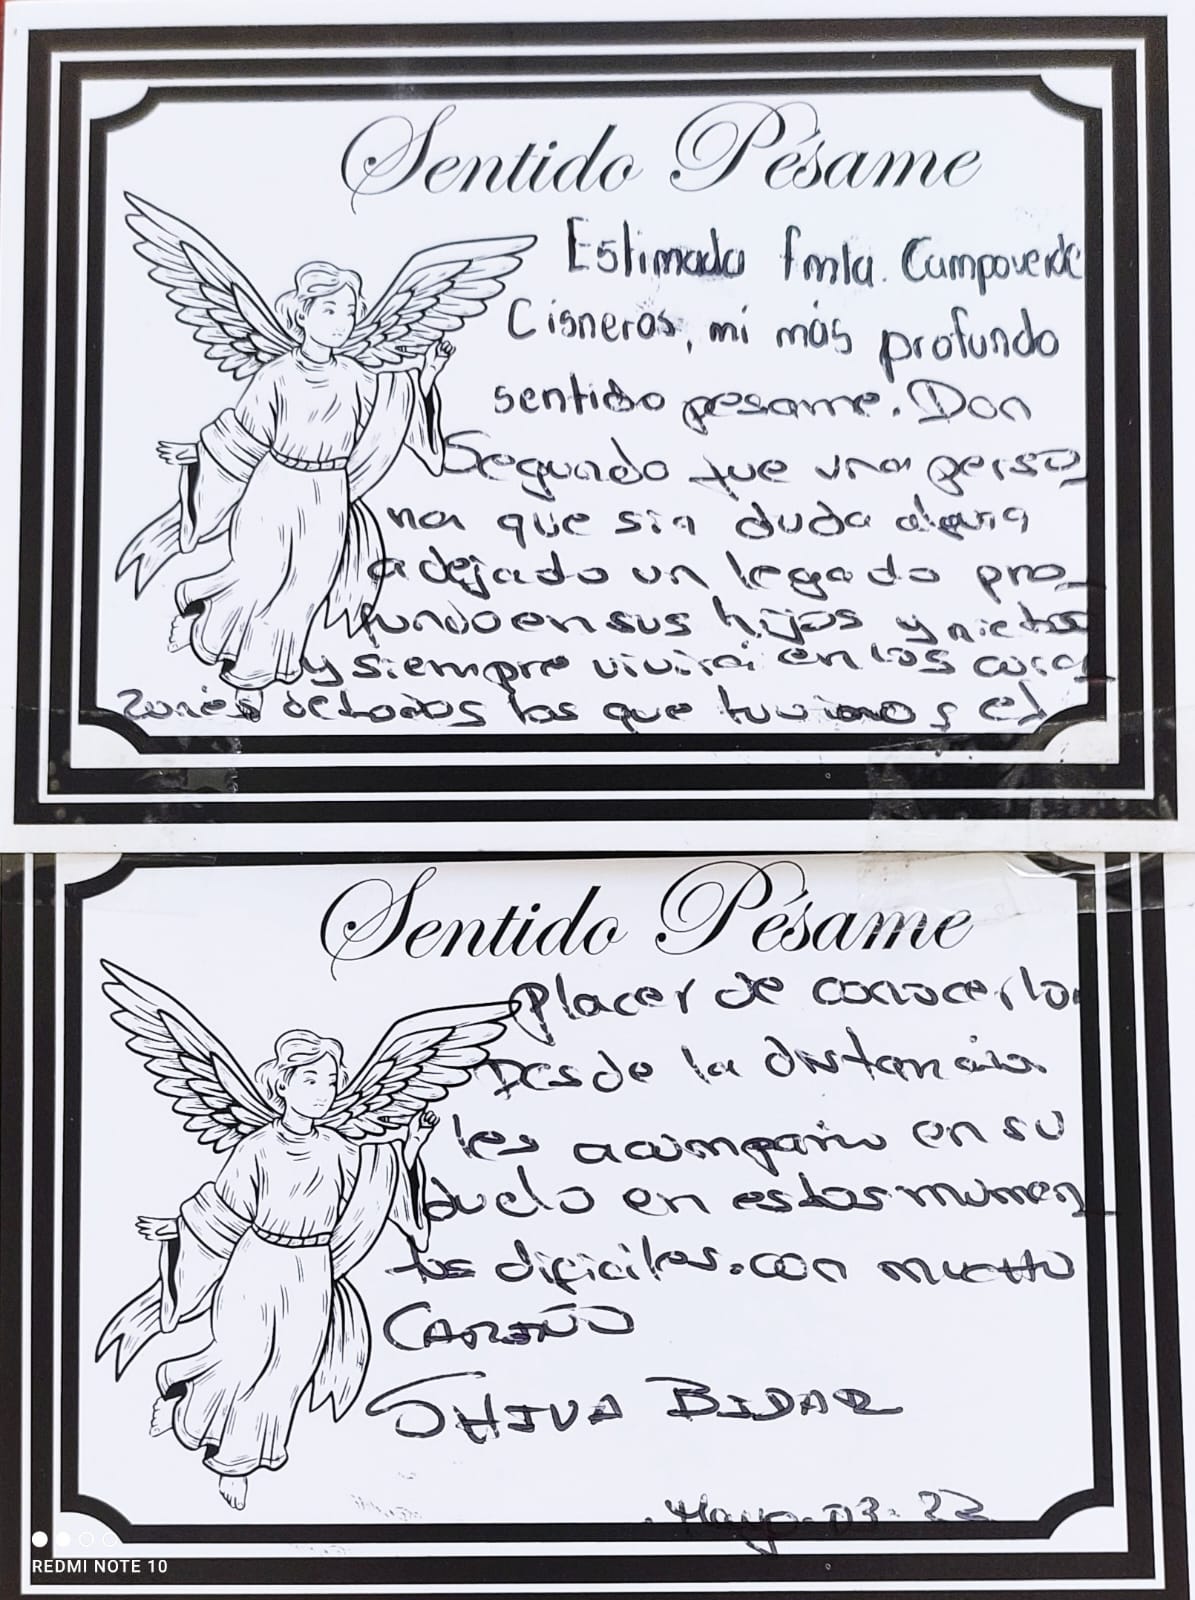 Sentido Pésame
Estimada fmla. Campoverde
Cisneros, mi más profundo
sentido pesame. Don
Segundo fue una perso_
na que sin duda alguna
a dejado un legado pro_
fundo en sus hijos y nietos
y siempre vivirá en los cora_
zones de todos los que tuvimos el
Sentido Pésame
placer de conocerlo.
Desde la distancia
les acompaño en su
duelo en estos momen_
tos dificiles. con mucho
CARIÑO
SHIVA BIDAR
Mayo-03-22
REDMI NOTE 10